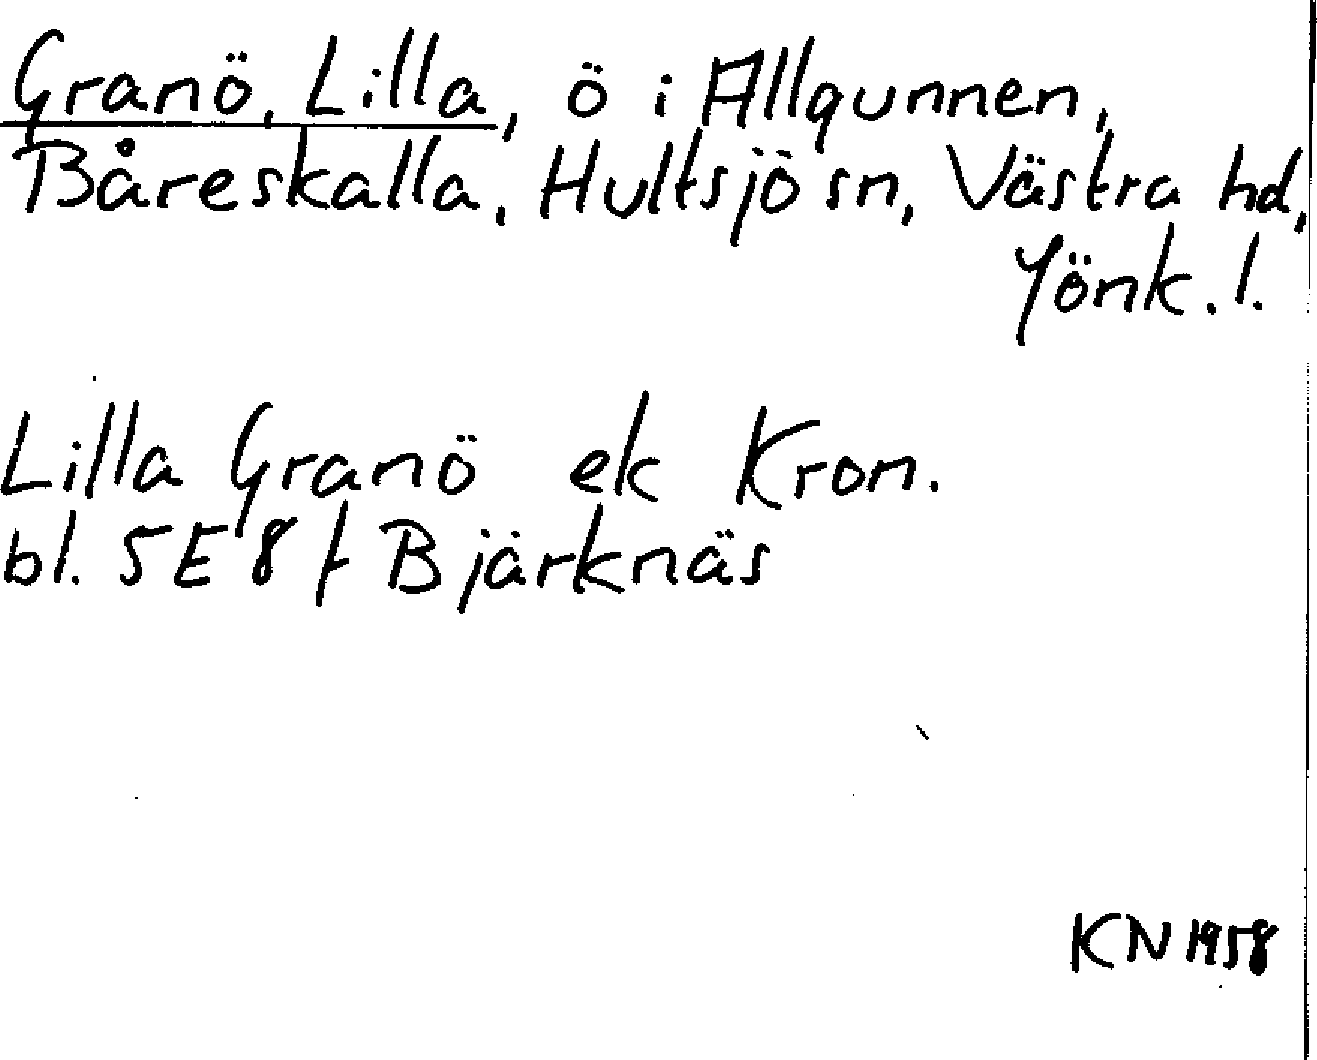 Granö, Lilla, ö i Allgunnen,
Båreskalla, Hultsjö sn, Västra hd,
Jönk. l.
Lilla Granö ek Kron.
bl. 5E8f Bjärknäs
KN 1958